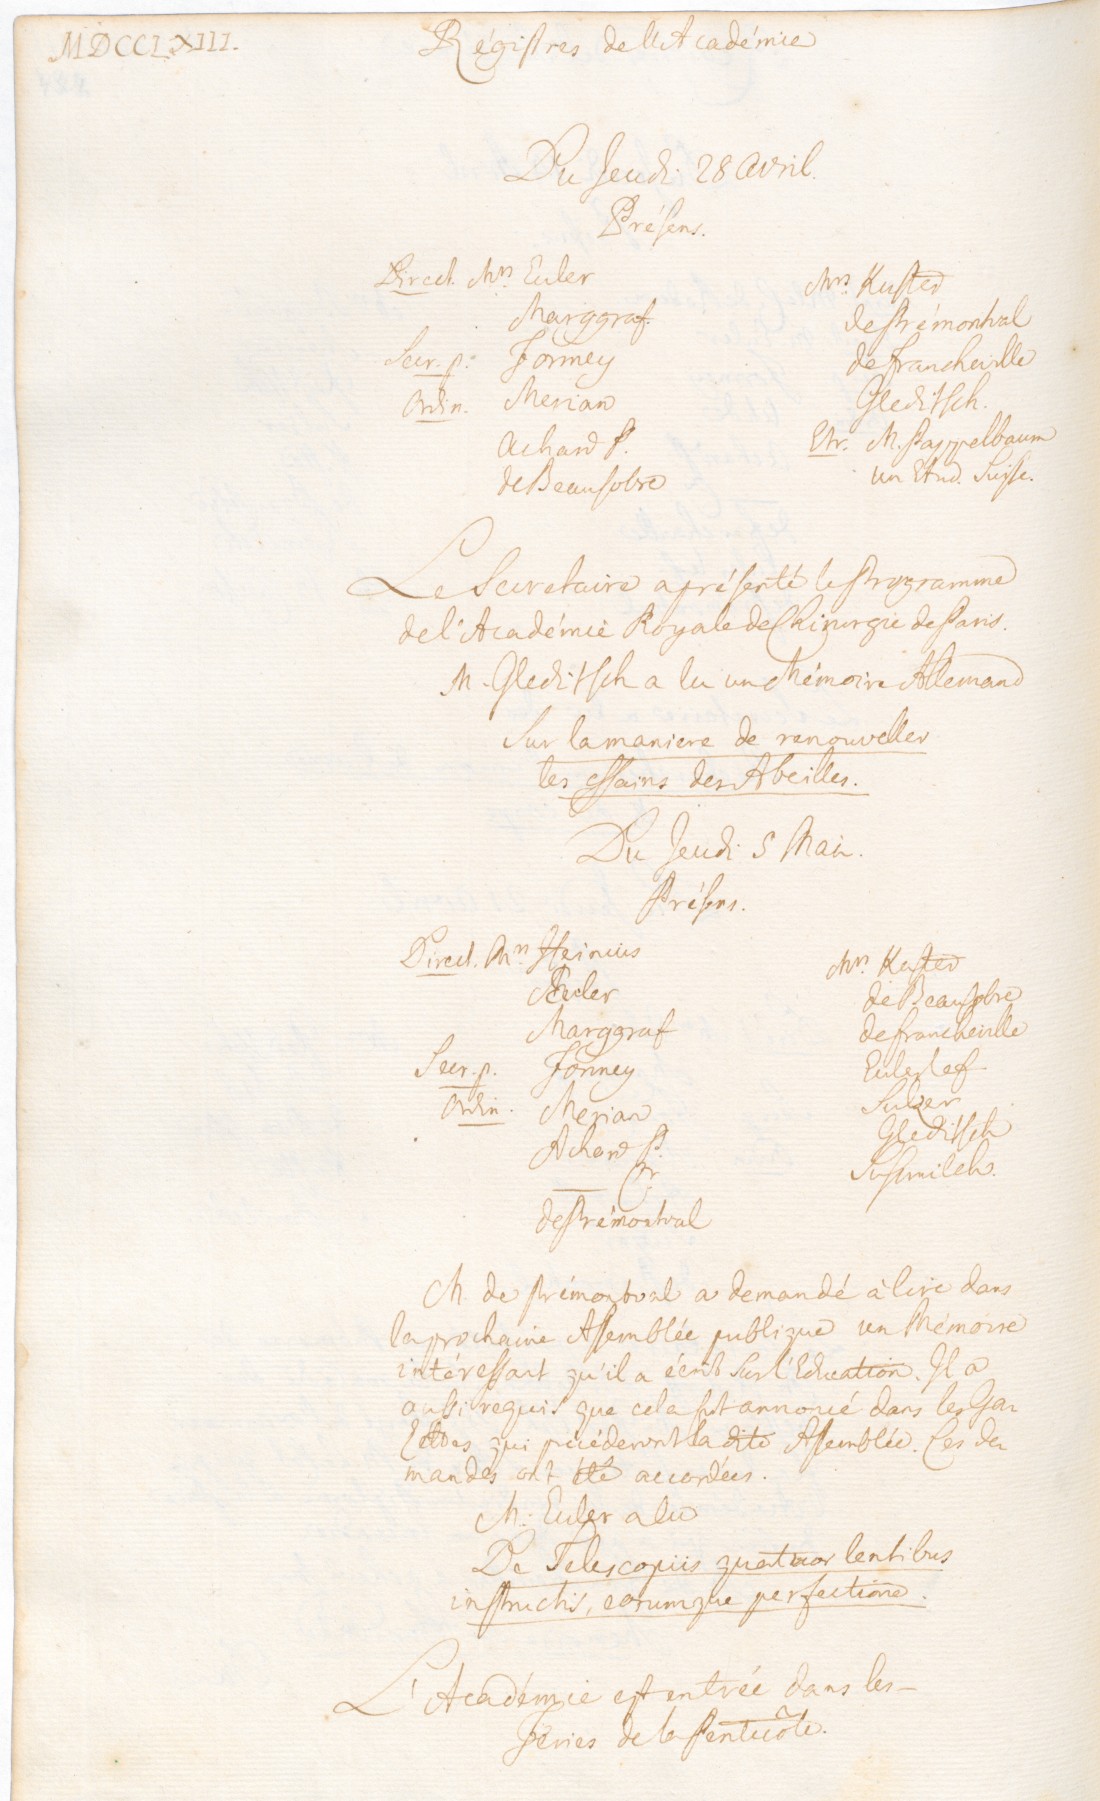 MDCCLXIII.
Régistres de l'Académie
Du Jeudi 28 Avril.
Présens.
Direct. Mrs. Euler
Marggraf.
Secr. p. Formey
Ordin. Merian
Achard P.
de Beausobre
Mrs. Kuster
de Prémontval
de Francheville
Gleditsch.
Etr. M. Pappelbaum
un Etud. Suisse.
Le Secretaire a présenté le Programme
de l'Académie Royale de Chirurgie de Paris.
M. Gleditsch a lu un Mémoire Allemand
Sur la maniere de renouveller
les essains des Abeilles.
Du Jeudi 5 Mai.
Présens.
Direct. Mrs. Heinius
Euler
Marggraf
Secr. p. Formey
Ordin. Merian
Achard P.
— Fr.
de Prémontval
Mrs. Kuster
de Beausobre
de Francheville
Euler le f.
Sulzer
Gleditsch
Susmilch.
M. de Prémontval a demandé à lire dans
la prochaine Assemblée publique un Mémoire
intéressant qu'il a écrit Sur l'Education. Il a
aussi requis que cela fut annoncé dans les Ga-
zettes qui précéderont la dite Assemblée. Ces de-
mandes ont été accordées.
M. Euler a lu
De Telescopiis quatuor lentibus
instructis, eorumque perfectione.
L'Académie est entrée dans les
Féries de la Pentecôte.